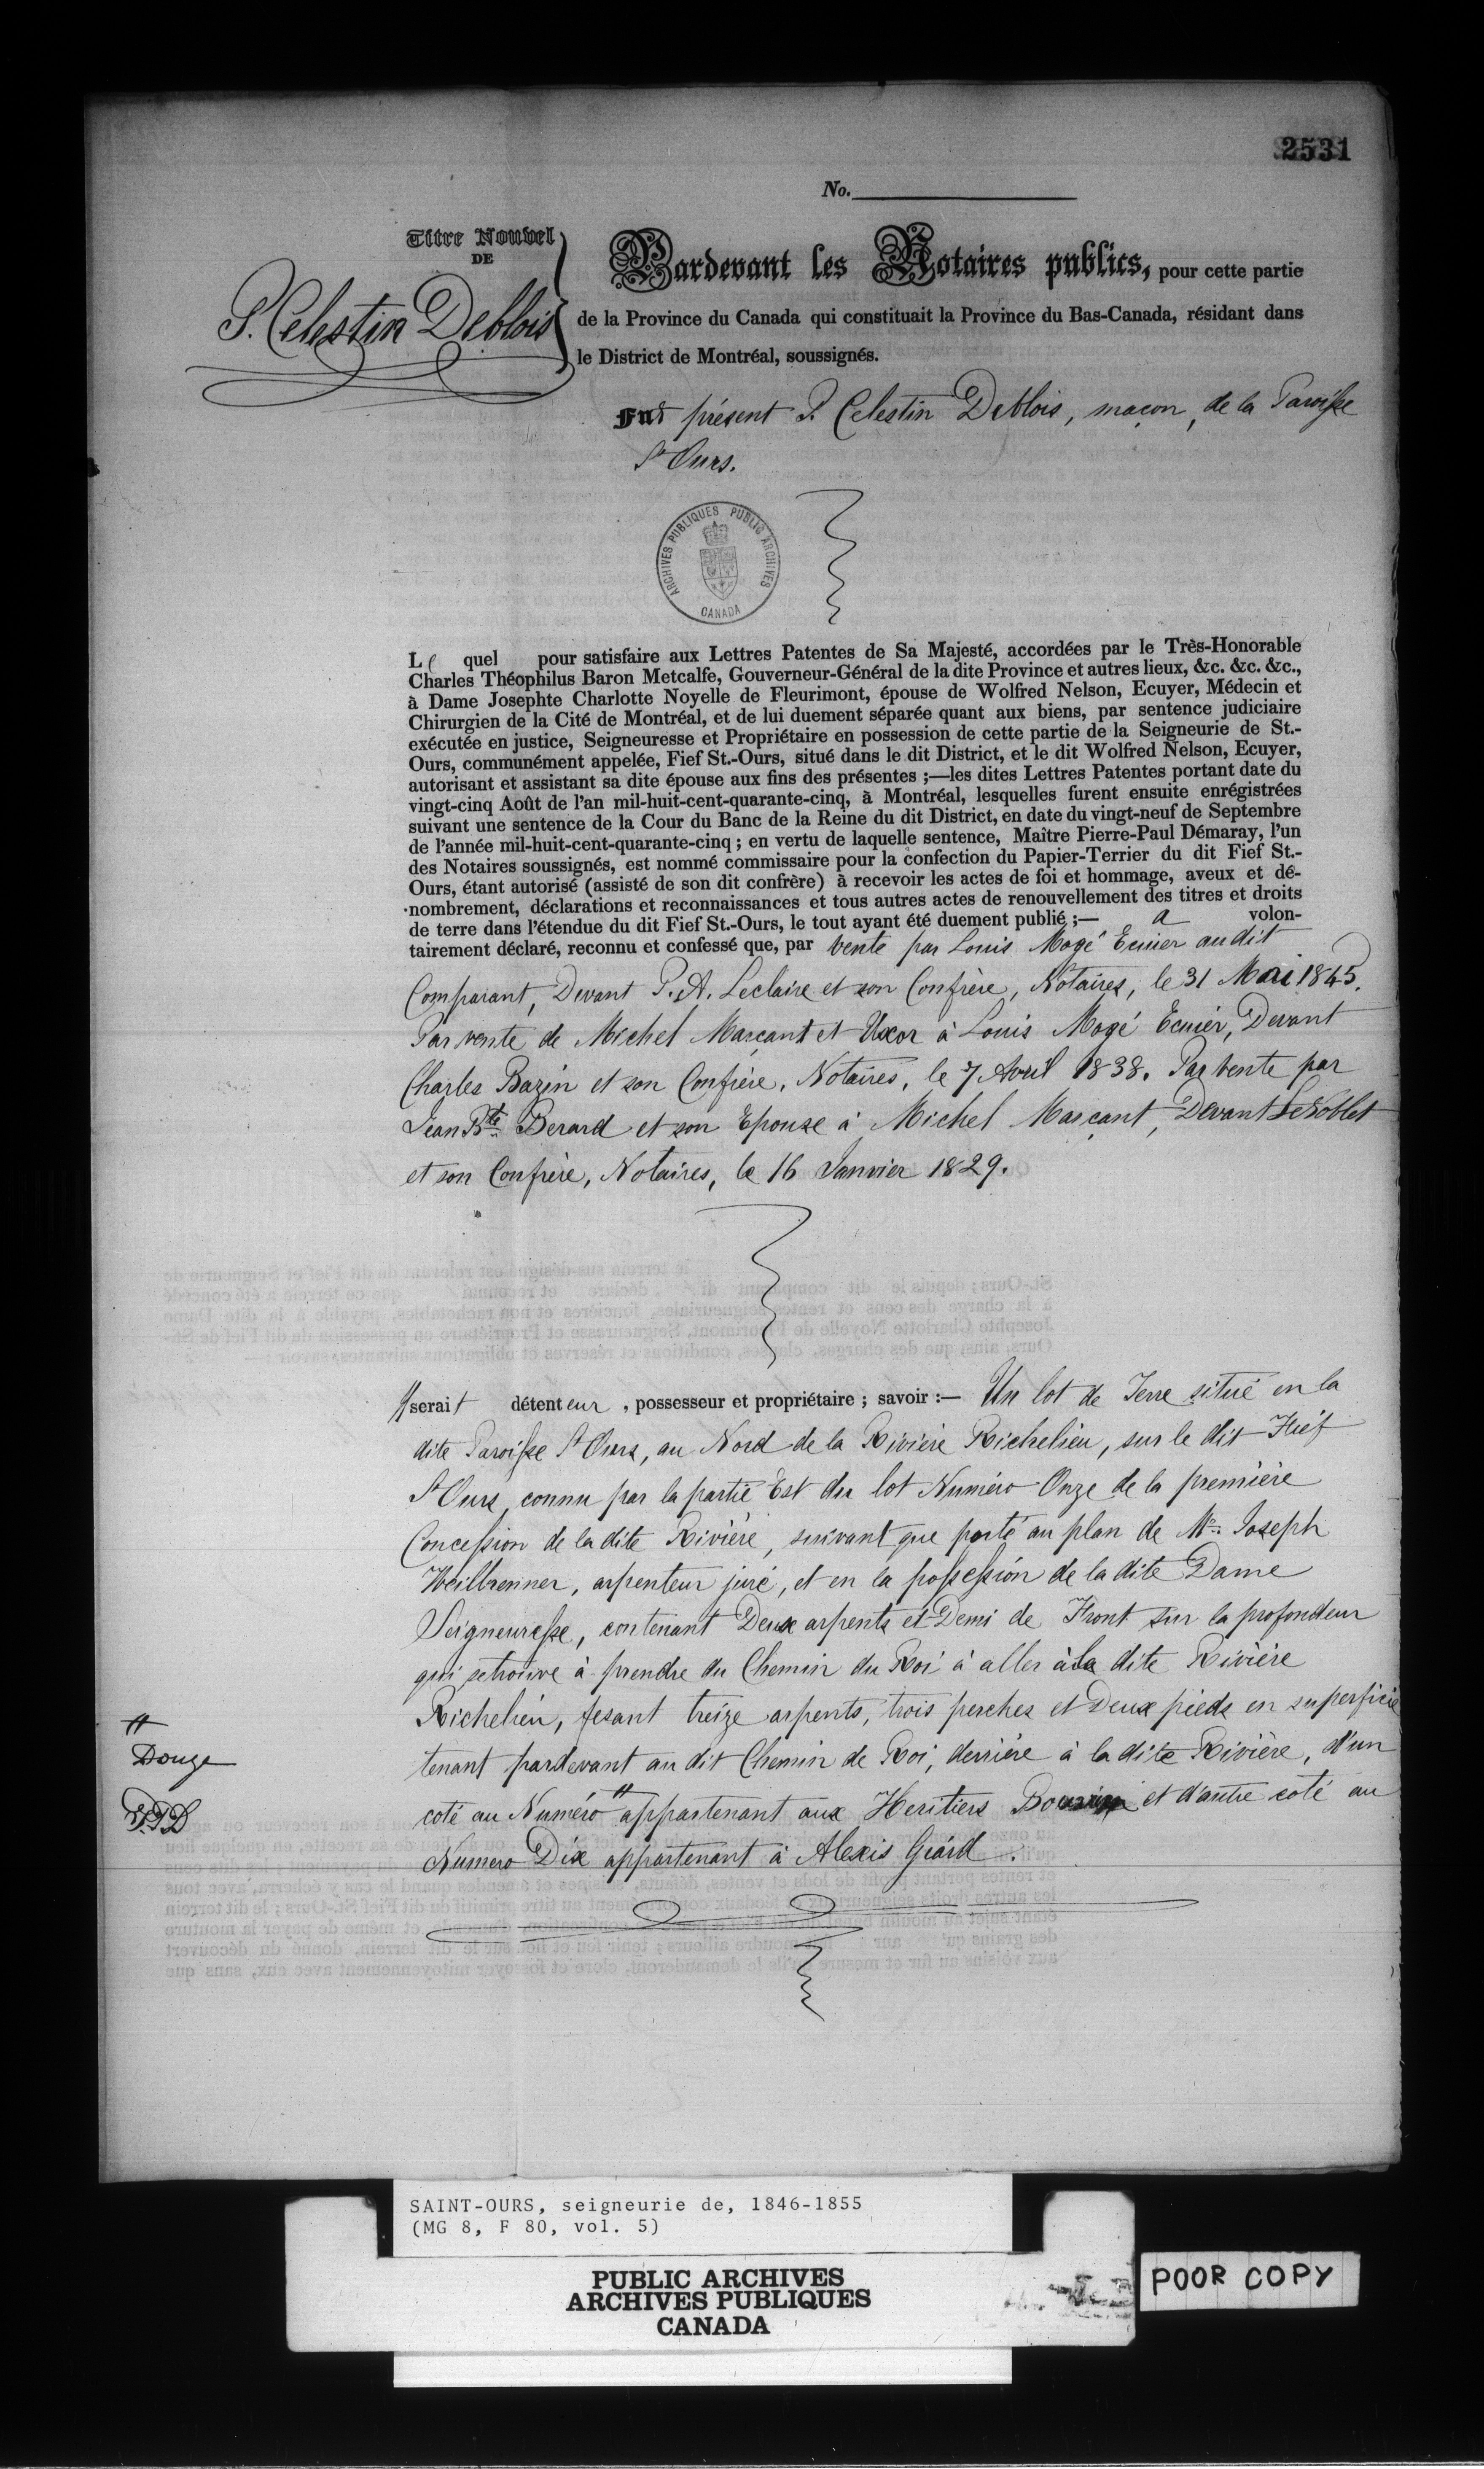 2531
No.
Titre Nouvel
DE
P. Celestin Deblois
Pardevant les Notaires publics, pour cette partie
de la Province du Canada qui constituait la Province du Bas-Canada, résidant dans
le District de Montréal, soussignés.
Fut présent P. Celestin Deblois, maçon, de la Paroisse
St Ours.
ARCHIVES PUBLIQUES PUBLIC ARCHIVES
CANADA
Le quel pour satisfaire aux Lettres Patentes de Sa Majesté, accordées par le Très-Honorable
Charles Théophilus Baron Metcalfe, Gouverneur-Général de la dite Province et autres lieux, &c. &c. &c.,
à Dame Josephte Charlotte Noyelle de Fleurimont, épouse de Wolfred Nelson, Ecuyer, Médecin et
Chirurgien de la Cité de Montréal, et de lui duement séparée quant aux biens, par sentence judiciaire
exécutée en justice, Seigneuresse et Propriétaire en possession de cette partie de la Seigneurie de St.-
Ours, communément appelée, Fief St.-Ours, situé dans le dit District, et le dit Wolfred Nelson, Ecuyer,
autorisant et assistant sa dite épouse aux fins des présentes ;—les dites Lettres Patentes portant date du
vingt-cinq Août de l'an mil-huit-cent-quarante-cinq, à Montréal, lesquelles furent ensuite enrégistrées
suivant une sentence de la Cour du Banc de la Reine du dit District, en date du vingt-neuf de Septembre
de l'année mil-huit-cent-quarante-cinq ; en vertu de laquelle sentence, Maître Pierre-Paul Démaray, l'un
des Notaires soussignés, est nommé commissaire pour la confection du Papier-Terrier du dit Fief St.-
Ours, étant autorisé (assisté de son dit confrère) à recevoir les actes de foi et hommage, aveux et dé-
nombrement, déclarations et reconnaissances et tous autres actes de renouvellement des titres et droits
de terre dans l'étendue du dit Fief St.-Ours, le tout ayant été duement publié ;— a volon-
tairement déclaré, reconnu et confessé que, par vente par Louis Mogé Ecuier au dit
Comparant, Devant P. A. Leclaire et son Confrère, Notaires, le 31 Mai 1845.
Par vente de Michel Marcant et Uxor à Louis Mogé Ecuier, Devant
Charles Bazin et son Confrère, Notaires, le 7 Avril 1838. Par vente par
Jean Bte Berard et son Epouse à Michel Marcant, Devant LeNoblet
et son Confrère, Notaires, le 16 Janvier 1829.
Il serait détenteur, possesseur et propriétaire ; savoir :— Un lot de Terre situé en la
dite Paroisse St Ours, au Nord de la Rivière Richelieu, sur le dit Fief
St Ours, connu par la partie Est du lot Numéro Onze de la première
Concession de la dite Rivière, suivant que porté au plan de Mr. Joseph
Weilbrenner, arpenteur juré, et en la possession de la dite Dame
Seigneuresse, contenant Deux arpents et Demi de Front sur la profondeur
qui se trouve à prendre du Chemin du Roi à aller à la dite Rivière
Richelieu, fesant treize arpents, trois perches et Deux pieds en superficie
tenant pardevant au dit Chemin de Roi, derrière à la dite Rivière, d'un
coté au Numéro # appartenant aux Heritiers et d'autre coté au
Numero Dix appartenant à Alexis Giard.
#
Douze
SAINT-OURS, seigneurie de, 1846-1855
(MG 8, F 80, vol. 5)
PUBLIC ARCHIVES
ARCHIVES PUBLIQUES
CANADA
POOR COPY